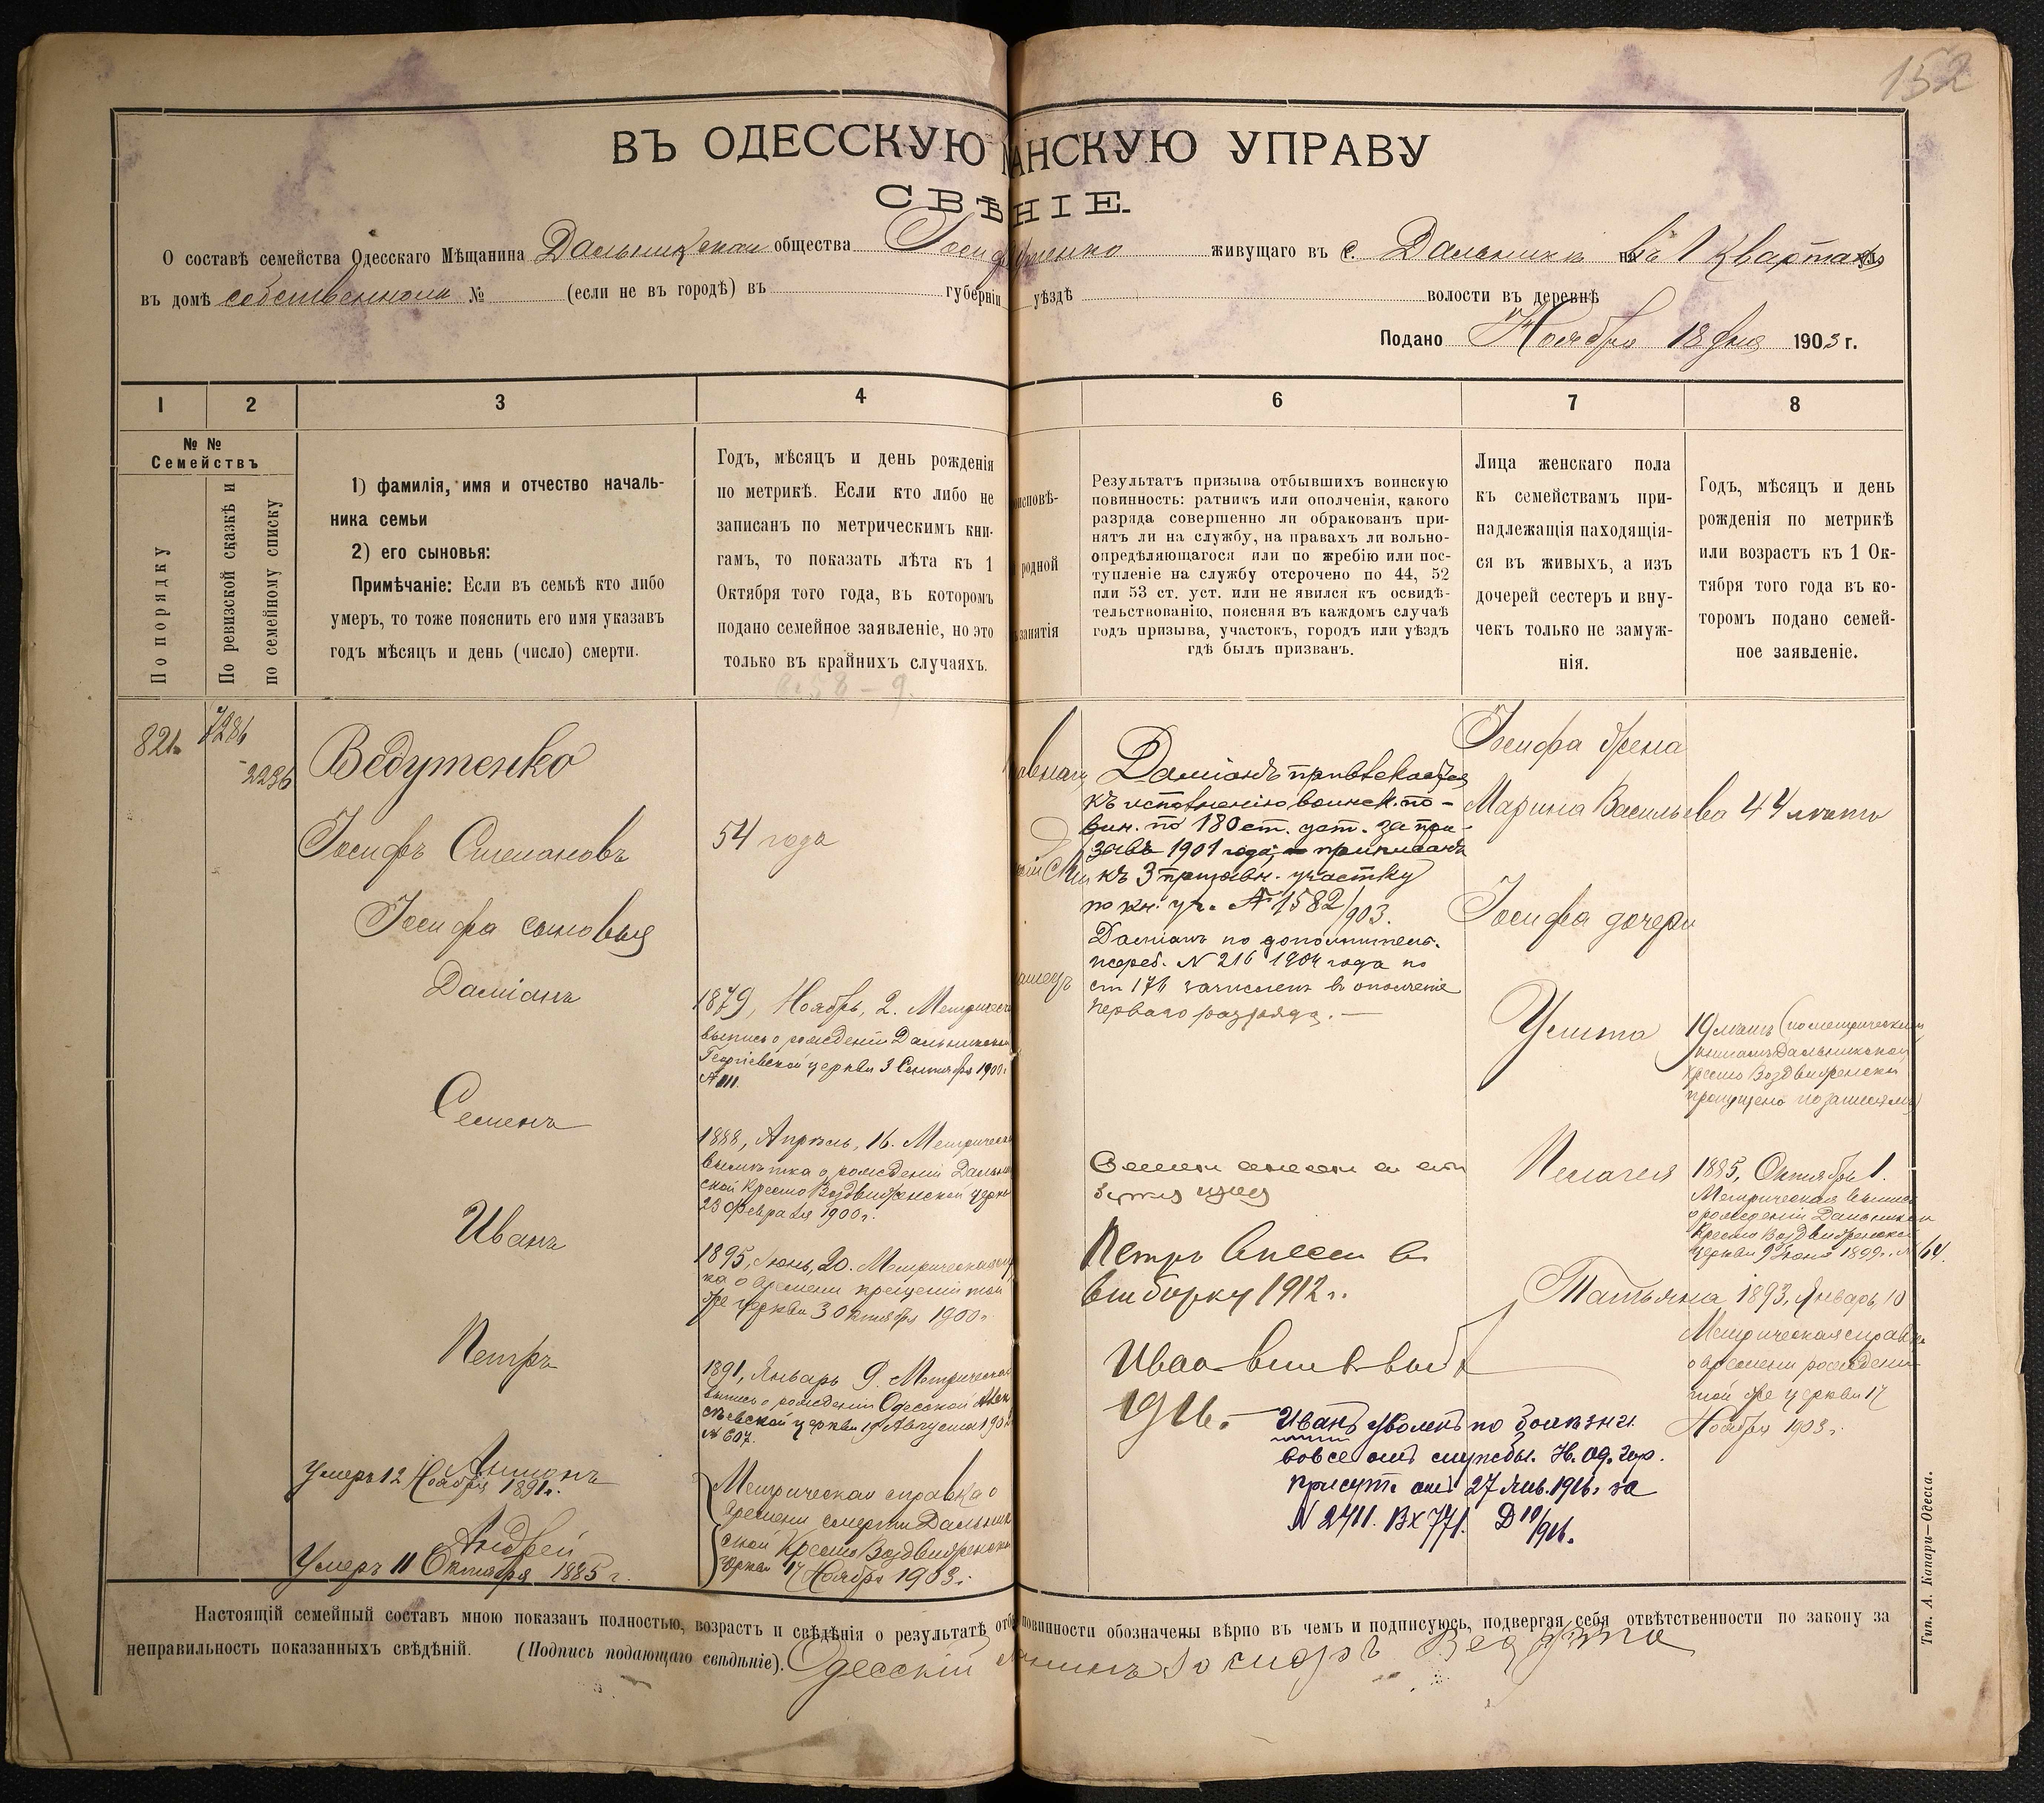 152
ВЪ ОДЕССКУЮ АНСКУЮ УПРАВУ
СВѢ НІЕ.
О составѣ семейства Одесскаго Мѣщанина Дальницкаго общества живущаго въ с. Дальникъ въ 1 кварталѣ
въ домѣ собственномъ № (если не въ городѣ) въ губерніи уѣздѣ волости въ деревнѣ
Подано Ноября 18 дня 1903 г.
1 2 3 4 6 7 8
№ №
Семействъ
По порядку
По ревизской сказкѣ и
по семейному списку
1) фамилія, имя и отчество началь-
ника семьи
2) его сыновья:
Примѣчаніе: Если въ семьѣ кто либо
умеръ, то тоже пояснить его имя указавъ
годъ мѣсяцъ и день (число) смерти.
Годъ, мѣсяцъ и день рожденія
по метрикѣ. Если кто либо не
записанъ по метрическимъ кни-
гамъ, то показать лѣта къ 1
Октября того года, въ которомъ
подано семейное заявленіе, но это
только въ крайнихъ случаяхъ.
исповѣ-
родной
занятія
Результатъ призыва отбывшихъ воинскую
повинность: ратникъ или ополченія, какого
разряда совершенно ли обракованъ при-
нятъ ли на службу, на правахъ ли вольно-
опредѣляющагося или по жребію или пос-
тупленіе на службу отсрочено по 44, 52
или 53 ст. уст. или не явился къ освидѣ-
тельствованію, поясняя въ каждомъ случаѣ
годъ призыва, участокъ, городъ или уѣздъ
гдѣ былъ призванъ.
Лица женскаго пола
къ семействамъ при-
надлежащія находящія-
ся въ живыхъ, а изъ
дочерей сестеръ и вну-
чекъ только не замуж-
нія.
Годъ, мѣсяцъ и день
рожденія по метрикѣ
или возрастъ къ 1 Ок-
тября того года въ ко-
торомъ подано семей-
ное заявленіе.
821
7286
2236
Ведутенко
Іосифъ Степановъ
54 года
Іосифа сыновья
Даміанъ
1879, Ноябрь, 2. Метрическ
выпись о рожденіи Дальницкой
Георгіевской церкви 3 Сентября 1900 г.
№ 111.
Семенъ
1888, Апрѣль, 16. Метрическ
выписка о рожденіи Дальни
ской Кресто Воздвиженской церкви
23 февраля 1900 г.
Иванъ
1895, Іюнь, 20. Метрическая
ка о времени крещенія той
же церкви 3 Октября 1900 г.
Петръ
1891, Январь 9. Метрическая
выпись о рожденіи Одесской Алек
сѣевской церкви 19 Августа 1902
№ 607.
Антонъ
Умеръ 12 Ноября 1891 г.
Андрей
Умеръ 11 Октября 1885 г.
Метрическая справка о
времени смерти Дальниц
ской Кресто Воздвиженской
церкви 17 Ноября 1903 г.
Даміанъ привлекается
къ исполненію воинск. по-
вин. по 180 ст. уст. за при-
зывъ 1901 года, приписанъ
къ 3 призывн. участку
по кн. уч. № 1582/903.
Даміанъ по дополнител.
жереб. № 216 1904 года по
ст 176 зачисленъ въ ополченіе
перваго разряда. —
Петръ внесен в
выборку 1912 г.
1916. —
Иванъ уволенъ по болѣзни
вовсе отъ службы. Н. Од. Гор.
присут. отъ 27 Янв. 1916 г. за
№ 2711. Вх 771. Д 10/916.
Іосифа жена
Марина Васильева 44 лѣтъ
Іосифа дочери
Улита
19 лѣтъ (по метрическимъ
книгамъ Дальницкой
Кресто Воздвиженской
пропущено по записямъ)
Пелагея
1885, Октябрь 1.
Метрическая выпись
о рожденіи Дальницкой
Кресто Воздвиженской
церкви 9 Іюня 1899 г. № 64.
Татьяна 1893, Январь, 10
Метрическая справка
о времени рожденія
той же церкви 17
Ноября 1903 г.
Настоящій семейный составъ мною показанъ полностью, возрастъ и свѣдѣнія о результатѣ отб повинности обозначены вѣрно въ чемъ и подписуюсь, подвергая себя отвѣтственности по закону за
неправильность показанныхъ свѣдѣній. (Подпись подающаго свѣдѣніе). Одесскій
Тип. А. Капари—Одесса.